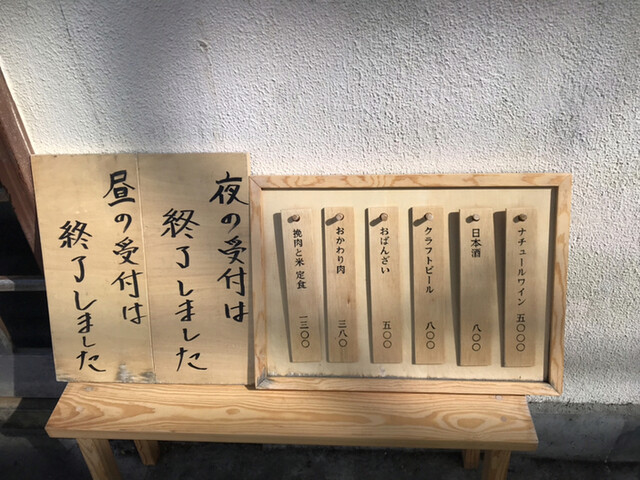 夜の受付は
終了しました
昼の受付は
終了しました
ナチュールワイン 五〇〇〇
日本酒 八〇〇
クラフトビール 八〇〇
おばんざい 五〇〇
おかわり肉 三八〇
挽肉と米 定食 一三〇〇